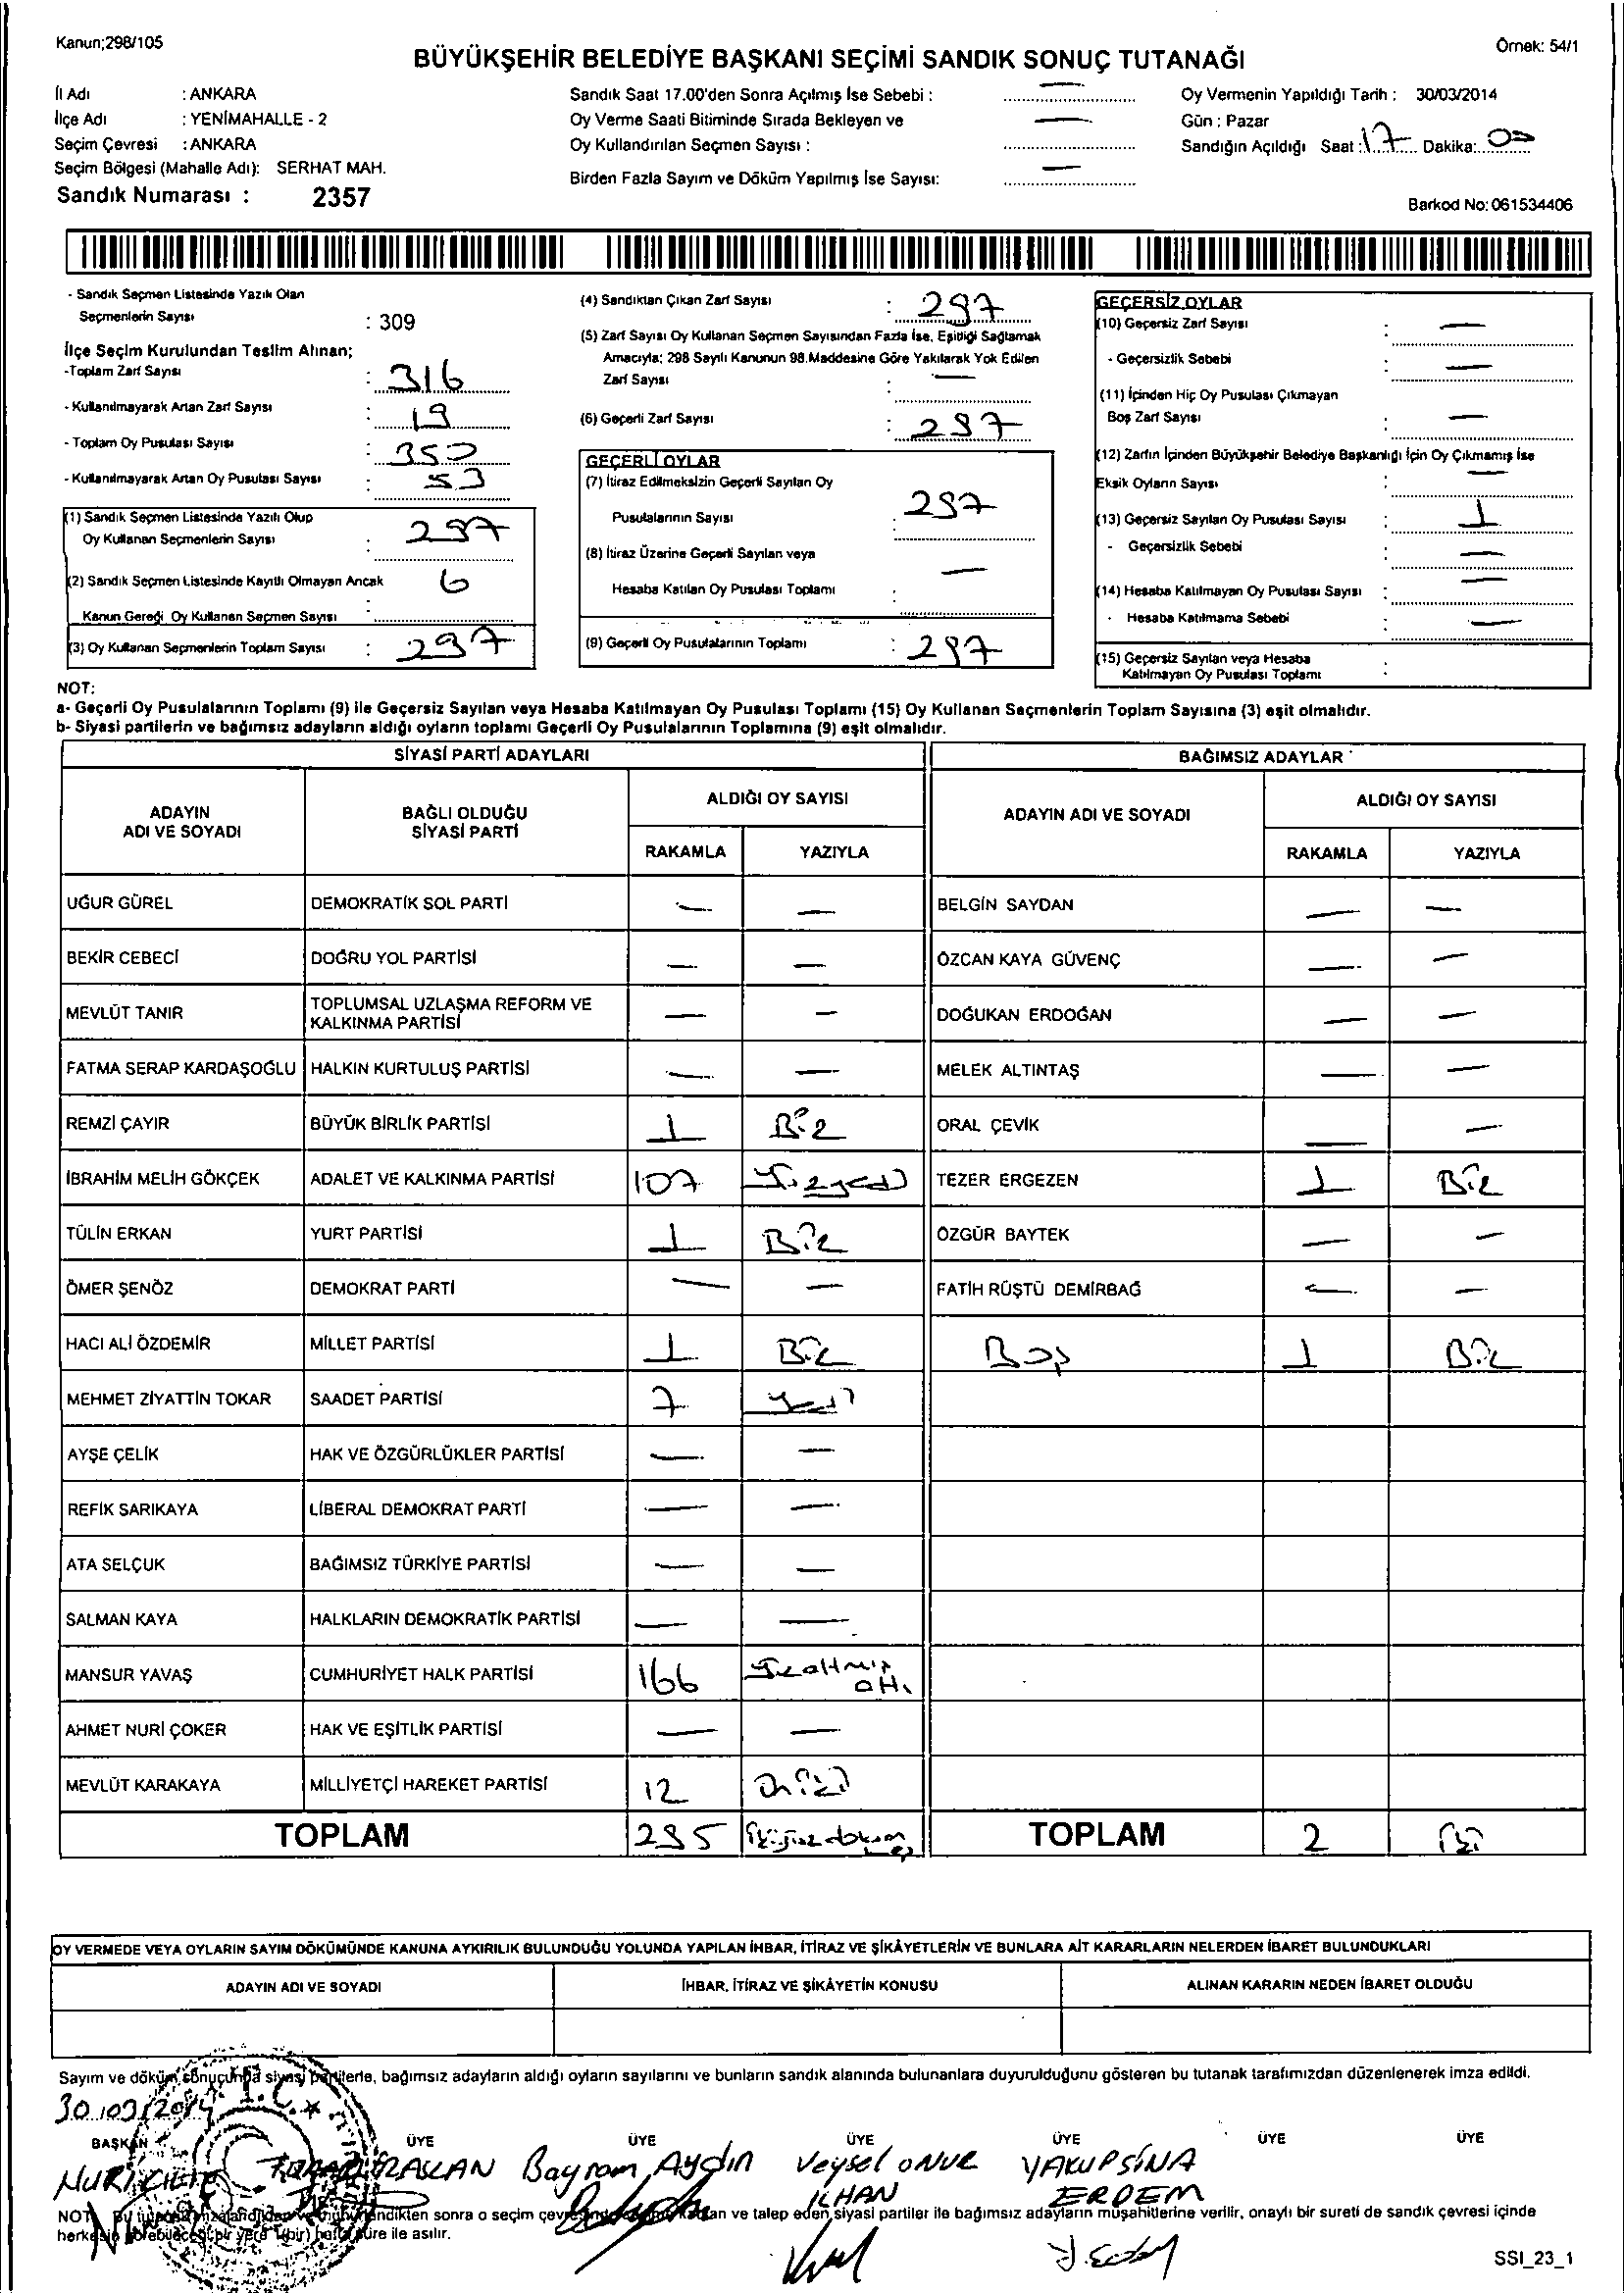 Kanun;298/105
Örnek: 54/1
BÜYÜKŞEHİR BELEDİYE BAŞKANI SEÇİMİ SANDIK SONUÇ TUTANAĞI
İl Adı : ANKARA
İlçe Adı : YENİMAHALLE - 2
Seçim Çevresi : ANKARA
Seçim Bölgesi (Mahalle Adı): SERHAT MAH.
Sandık Numarası : 2357
Sandık Saat 17.00'den Sonra Açılmış İse Sebebi : —
Oy Verme Saati Bitiminde Sırada Bekleyen ve
Oy Kullandırılan Seçmen Sayısı : —
Birden Fazla Sayım ve Döküm Yapılmış İse Sayısı: —
Oy Vermenin Yapıldığı Tarih : 30/03/2014
Gün : Pazar
Sandığın Açıldığı Saat : 17 Dakika: 00
Barkod No: 061534406
- Sandık Seçmen Listesinde Yazılı Olan
Seçmenlerin Sayısı : 309
İlçe Seçim Kurulundan Teslim Alınan;
-Toplam Zarf Sayısı : 316
- Kullanılmayarak Artan Zarf Sayısı : 19
- Toplam Oy Pusulası Sayısı : 350
- Kullanılmayarak Artan Oy Pusulası Sayısı : 53
(1) Sandık Seçmen Listesinde Yazılı Olup
Oy Kullanan Seçmenlerin Sayısı : 297
(2) Sandık Seçmen Listesinde Kayıtlı Olmayan Ancak
Kanun Gereği Oy Kullanan Seçmen Sayısı : 6
(3) Oy Kullanan Seçmenlerin Toplam Sayısı : 297
(4) Sandıktan Çıkan Zarf Sayısı : 297
(5) Zarf Sayısı Oy Kullanan Seçmen Sayısından Fazla İse, Eşitliği Sağlamak
Amacıyla; 298 Sayılı Kanunun 98.Maddesine Göre Yakılarak Yok Edilen
Zarf Sayısı : —
(6) Geçerli Zarf Sayısı : 297
GEÇERLİ OYLAR
(7) İtiraz Edilmeksizin Geçerli Sayılan Oy
Pusulalarının Sayısı : 297
(8) İtiraz Üzerine Geçerli Sayılan veya
Hesaba Katılan Oy Pusulası Toplamı : —
(9) Geçerli Oy Pusulalarının Toplamı : 297
GEÇERSİZ OYLAR
(10) Geçersiz Zarf Sayısı : —
- Geçersizlik Sebebi : —
(11) İçinden Hiç Oy Pusulası Çıkmayan
Boş Zarf Sayısı : —
(12) Zarfın İçinden Büyükşehir Belediye Başkanlığı İçin Oy Çıkmamış İse
Eksik Oyların Sayısı : —
(13) Geçersiz Sayılan Oy Pusulası Sayısı : 1
- Geçersizlik Sebebi : —
(14) Hesaba Katılmayan Oy Pusulası Sayısı : —
- Hesaba Katılmama Sebebi : —
(15) Geçersiz Sayılan veya Hesaba
Katılmayan Oy Pusulası Toplamı :
NOT:
a- Geçerli Oy Pusulalarının Toplamı (9) ile Geçersiz Sayılan veya Hesaba Katılmayan Oy Pusulası Toplamı (15) Oy Kullanan Seçmenlerin Toplam Sayısına (3) eşit olmalıdır.
b- Siyasi partilerin ve bağımsız adayların aldığı oyların toplamı Geçerli Oy Pusulalarının Toplamına (9) eşit olmalıdır.
SİYASİ PARTİ ADAYLARI
ADAYIN ADI VE SOYADI BAĞLI OLDUĞU SİYASİ PARTİ ALDIĞI OY SAYISI
RAKAMLA YAZIYLA
UĞUR GÜREL DEMOKRATİK SOL PARTİ — —
BEKİR CEBECİ DOĞRU YOL PARTİSİ — —
MEVLÜT TANIR TOPLUMSAL UZLAŞMA REFORM VE KALKINMA PARTİSİ — —
FATMA SERAP KARDAŞOĞLU HALKIN KURTULUŞ PARTİSİ — —
REMZİ ÇAYIR BÜYÜK BİRLİK PARTİSİ 1 Bir
İBRAHİM MELİH GÖKÇEK ADALET VE KALKINMA PARTİSİ 107 Yüzyedi
TÜLİN ERKAN YURT PARTİSİ 1 Bir
ÖMER ŞENÖZ DEMOKRAT PARTİ — —
HACI ALİ ÖZDEMİR MİLLET PARTİSİ 1 Bir
MEHMET ZİYATTİN TOKAR SAADET PARTİSİ 7 Yedi
AYŞE ÇELİK HAK VE ÖZGÜRLÜKLER PARTİSİ — —
REFİK SARIKAYA LİBERAL DEMOKRAT PARTİ — —
ATA SELÇUK BAĞIMSIZ TÜRKİYE PARTİSİ — —
SALMAN KAYA HALKLARIN DEMOKRATİK PARTİSİ — —
MANSUR YAVAŞ CUMHURİYET HALK PARTİSİ 166 Yüzaltmış altı
AHMET NURİ ÇOKER HAK VE EŞİTLİK PARTİSİ — —
MEVLÜT KARAKAYA MİLLİYETÇİ HAREKET PARTİSİ 12 oniki
TOPLAM 295 ikiyüzdoksan beş
BAĞIMSIZ ADAYLAR
ADAYIN ADI VE SOYADI ALDIĞI OY SAYISI
RAKAMLA YAZIYLA
BELGİN SAYDAN — —
ÖZCAN KAYA GÜVENÇ — —
DOĞUKAN ERDOĞAN — —
MELEK ALTINTAŞ — —
ORAL ÇEVİK — —
TEZER ERGEZEN 1 Bir
ÖZGÜR BAYTEK — —
FATİH RÜŞTÜ DEMİRBAĞ — —
Boş 1 Bir
TOPLAM 2 iki
OY VERMEDE VEYA OYLARIN SAYIM DÖKÜMÜNDE KANUNA AYKIRILIK BULUNDUĞU YOLUNDA YAPILAN İHBAR, İTİRAZ VE ŞİKÂYETLERİN VE BUNLARA AİT KARARLARIN NELERDEN İBARET BULUNDUKLARI
ADAYIN ADI VE SOYADI İHBAR, İTİRAZ VE ŞİKÂYETİN KONUSU ALINAN KARARIN NEDEN İBARET OLDUĞU
Sayım ve döküm sonucunda siyasi partilerle, bağımsız adayların aldığı oyların sayılarını ve bunların sandık alanında bulunanlara duyurulduğunu gösteren bu tutanak tarafımızdan düzenlenerek imza edildi.
30/03/2014
T.C.
BAŞKAN ÜYE ÜYE ÜYE ÜYE ÜYE ÜYE
NURİ
Bayram Aydın
Veysel ONUR İLHAN
YAKUP SİNA ERDEM
sonra o seçim ve talep eden siyasi partiler ile bağımsız adayların müşahitlerine verilir, onaylı bir sureti de sandık çevresi içinde
süre ile asılır.
SSI_23_1